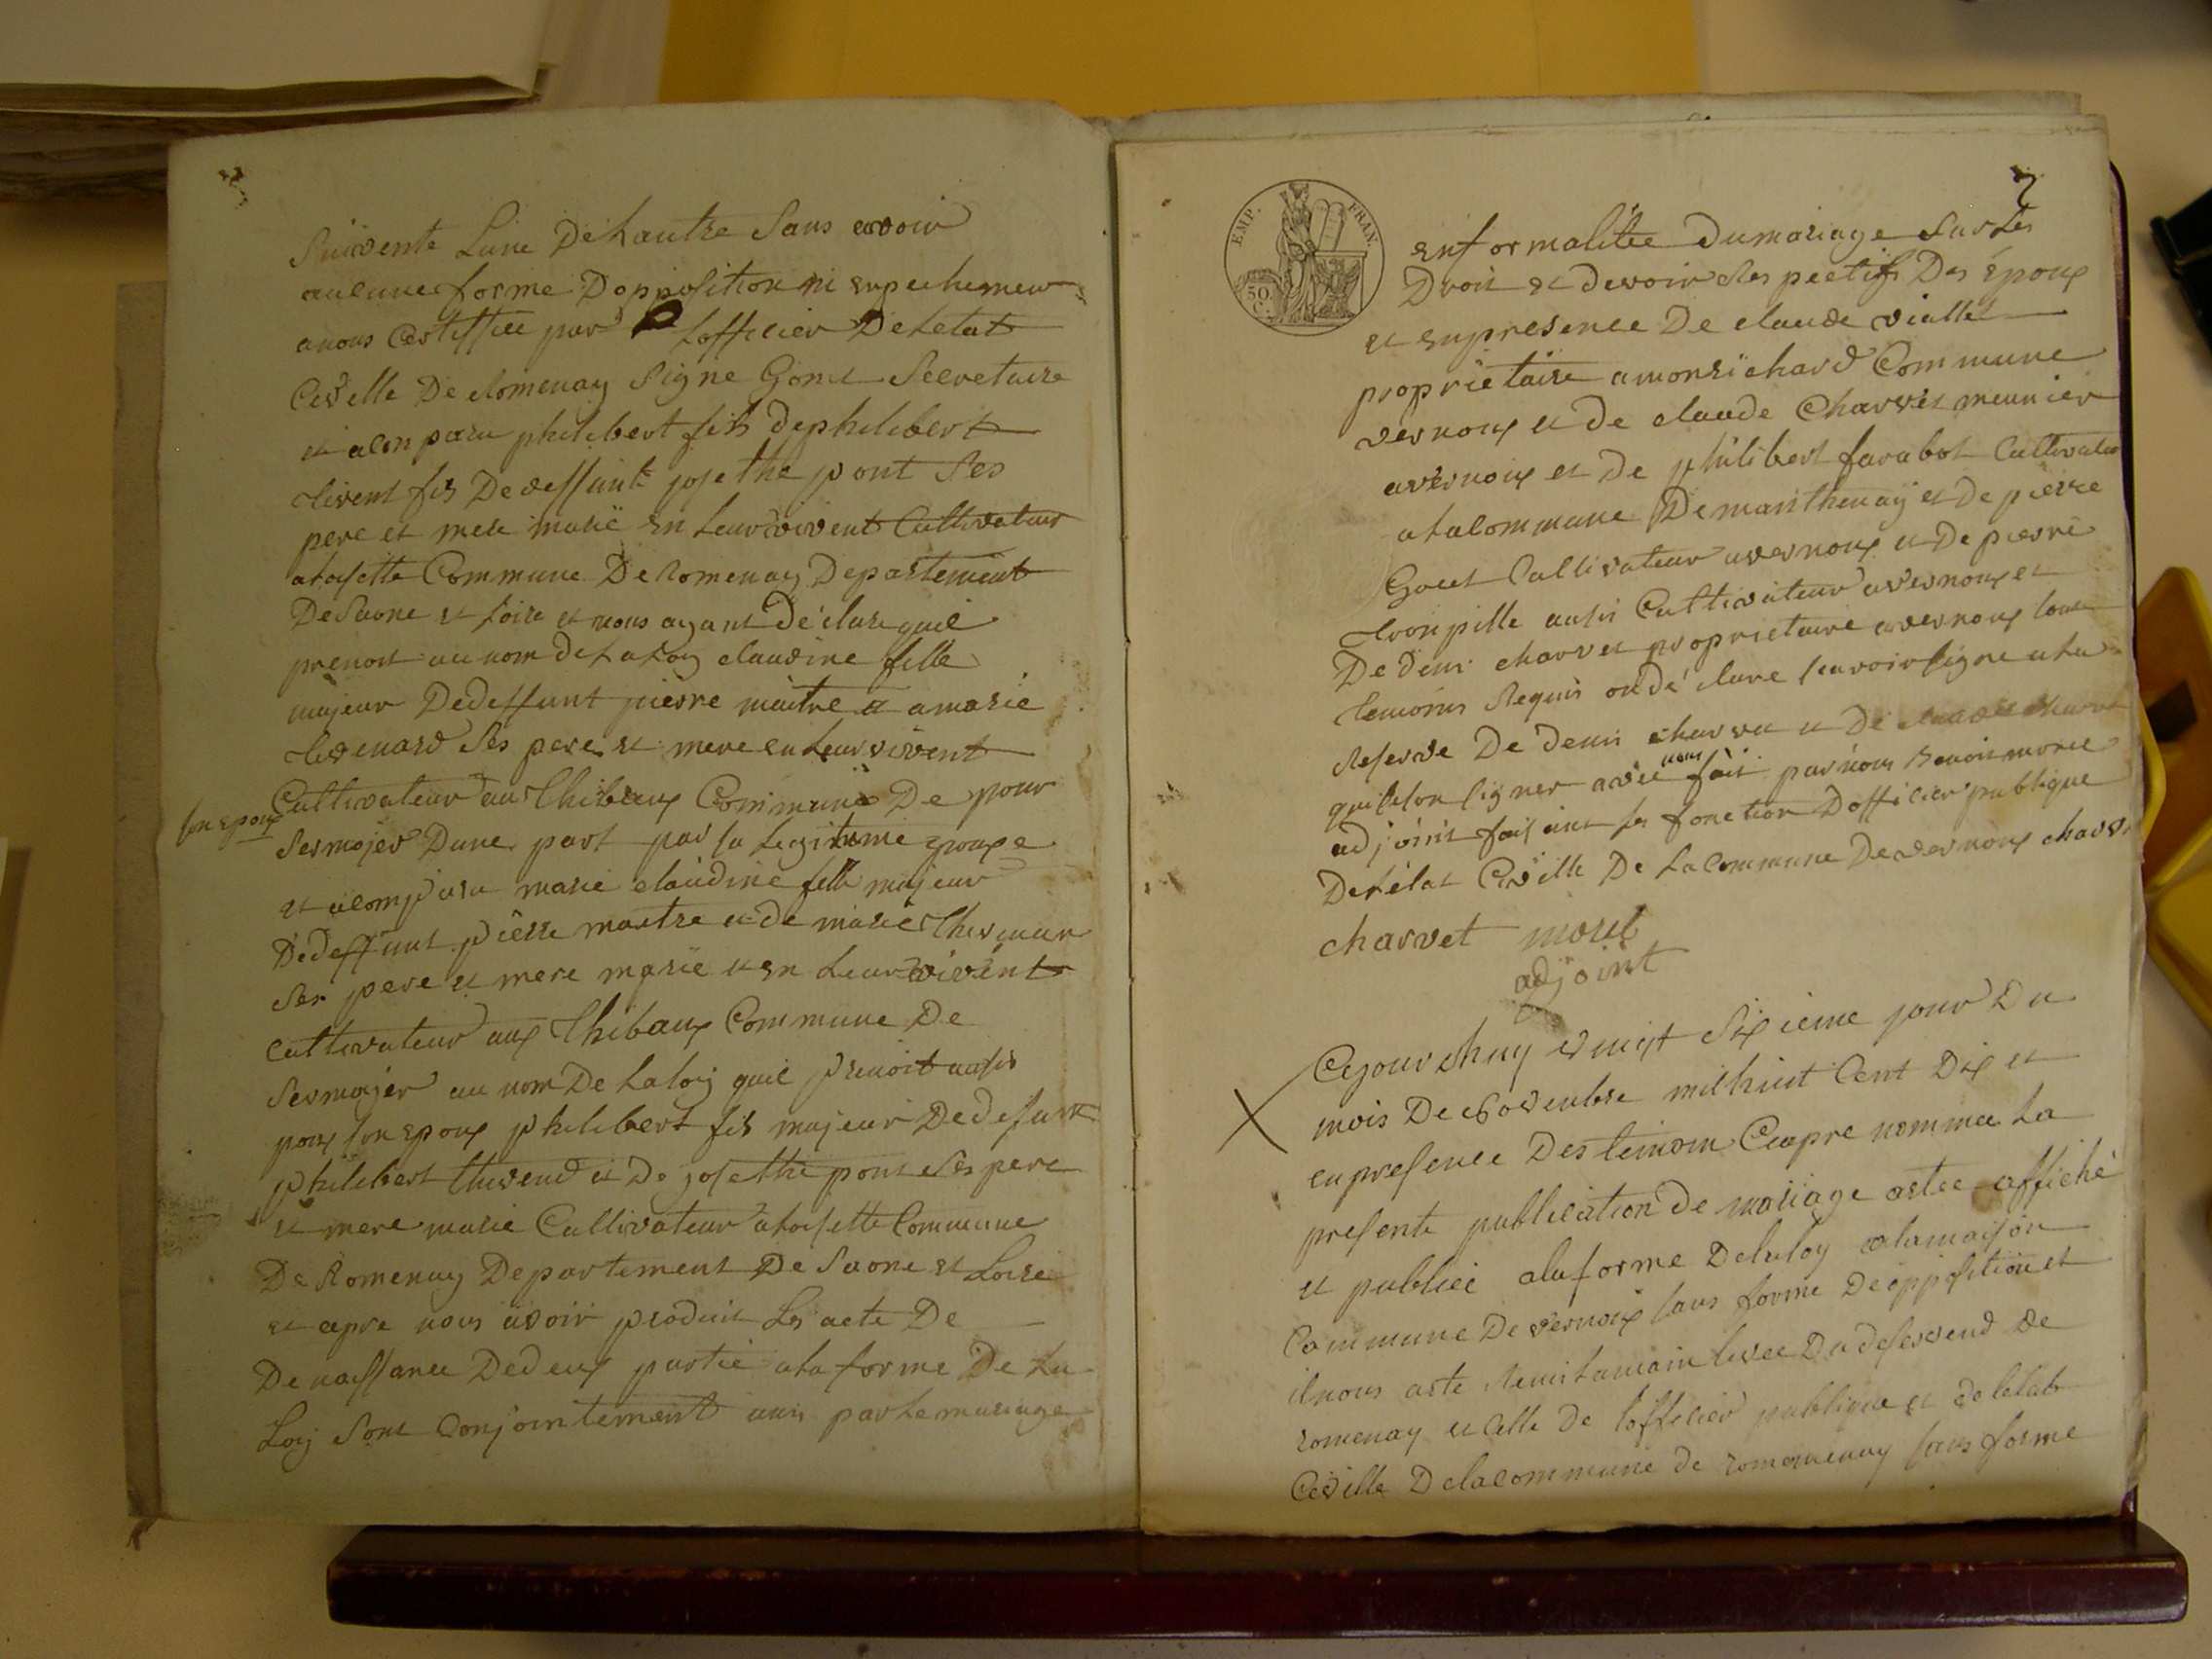 Suivente Lune Dehautre Sans avoir
aucune forme Dopposition ni enpechemen
anous Certiffiee par Lofficier Deletat
Ceville De Romenay Signe Gome Secretaire
et a Conparu philibert fils dephilibert
fils Dedeffunte josethe pont Ses
pere et mere marié en Leur vivent Cultivateur
alasette Commune De Romenay Departement
De Saone et Loire et nous ayant Declare quil
prenoit au nom de La Loy claudine fille
majeur Dedeffunt pierre maitre a marie
Ses pere et mere en Leur vivent
son epoux
Cultivateur au Thibaux Commune De pour
Sermojer Dune part par sa Legitime epouxe
et a Comparu marie claudine fille majeur
Dedeffunt pierre maitre et de marie
Ses pere et mere marié et en Leur vivent
cultivateur aux Thibaux Commune De
Sermojer au nom De Laloy quil prenoit
pour son epoux philibert fils majeur Dedefunt
philibert thevend et De josethe pont Ses pere
et mere marie Cultivateur alasette Commune
De Romenay Departement De Saone et Loire
et apre nous avoir produit Les acte De
De naissance Dedeux partie ala forme De La
Loy Sont Conjointement unis par Le mariage
2
EMP. FRAN.
50 C.
enformalitee Dumariage Sur Les
Droit et devoir Respectifs Des Epoux
et enpresence De claude viallet
proprietaire a monrichard Commune
vernoux et de claude Charvet meunier
avernoux et De philibert farabot Cultivateur
alacommune Demanthenay et De pierre
Gouet Cultivateur avernoux et De pierre
tronpille ausi Cultivateur avernoux et
De Denis charvet proprietaire avernoux tous
temoins Requis ondé clare savoir signe ala
Reserve De Denis charvet et De claude charvet
quilson signer avec nous fait par nous Benoit morel
adjoint faisant les fonction Dofficier publique
Deletat Ceville De La Commune De vernoux charvet
charvet morel
adjoint
Cejourdhuy vingt Sixieme jour Du
mois De novembre milhuit Cent Dix et
enpresence Des temoin Ciapre nommee La
presente publication de mariage astee affiché
et publiée alaforme Delaloy alamaison
Commune De vernoux sans forme De opposition et
ilnous aste Remis lamain levee Du desservend de
romenay et Celle De Lofficier publique et de letat
Ceville Delacommune de romenenay sans forme